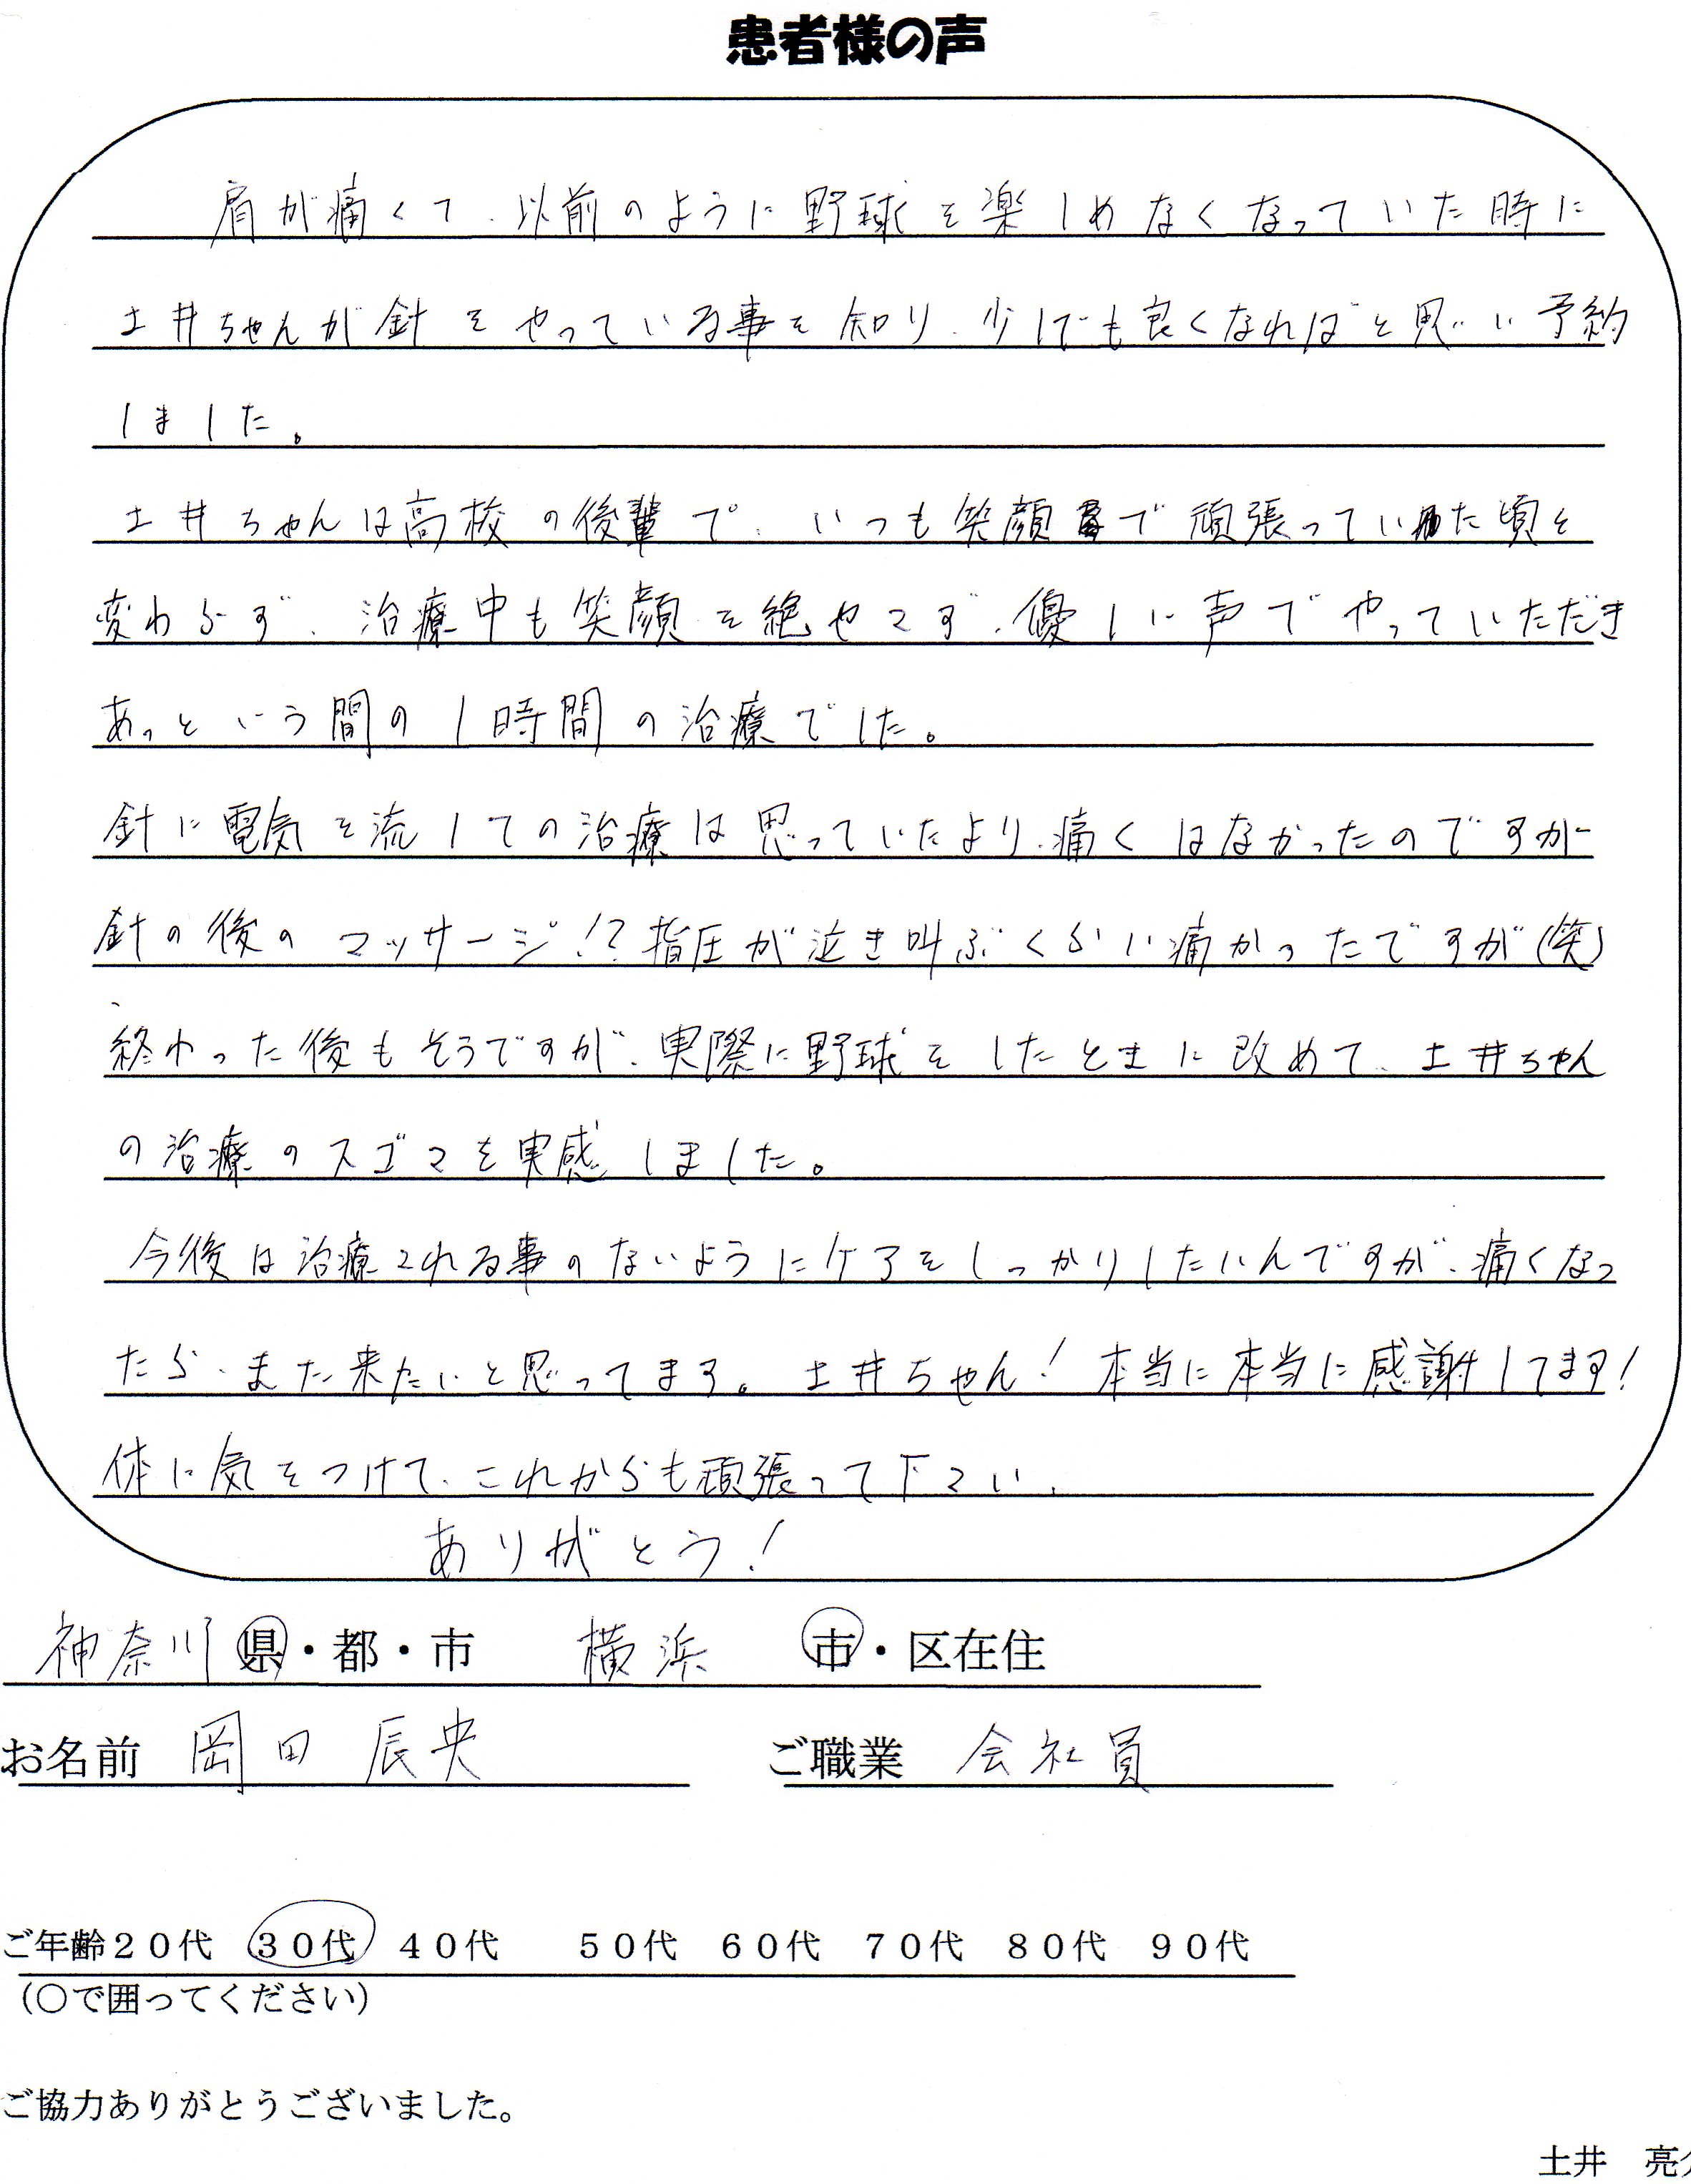 患者様の声
肩が痛くて、以前のように野球を楽しめなくなっていた時に
土井ちゃんが針をやっている事を知り、少しでも良くなればと思い予約
しました。
土井ちゃんは高校の後輩で、いつも笑顔で頑張っていた頃と
変わらず、治療中も笑顔を絶やさず、優しい声でやっていただき
あっという間の1時間の治療でした。
針に電気を流しての治療は思っていたより、痛くはなかったのですが
針の後のマッサージ!?指圧が泣き叫ぶくらい痛かったですが(笑)
終わった後もそうですが、実際に野球をしたときに改めて、土井ちゃん
の治療のスゴさを実感しました。
今後は治療される事のないようにケアをしっかりしたいんですが、痛くなっ
たら、また来たいと思ってます。土井ちゃん!本当に本当に感謝してます!
体に気をつけて、これからも頑張って下さい。
ありがとう!
神奈川県・都・市 横浜 市・区在住
お名前 岡田 辰央 ご職業 会社員
ご年齢20代 30代 40代 50代 60代 70代 80代 90代
(○で囲ってください)
ご協力ありがとうございました。
土井 亮